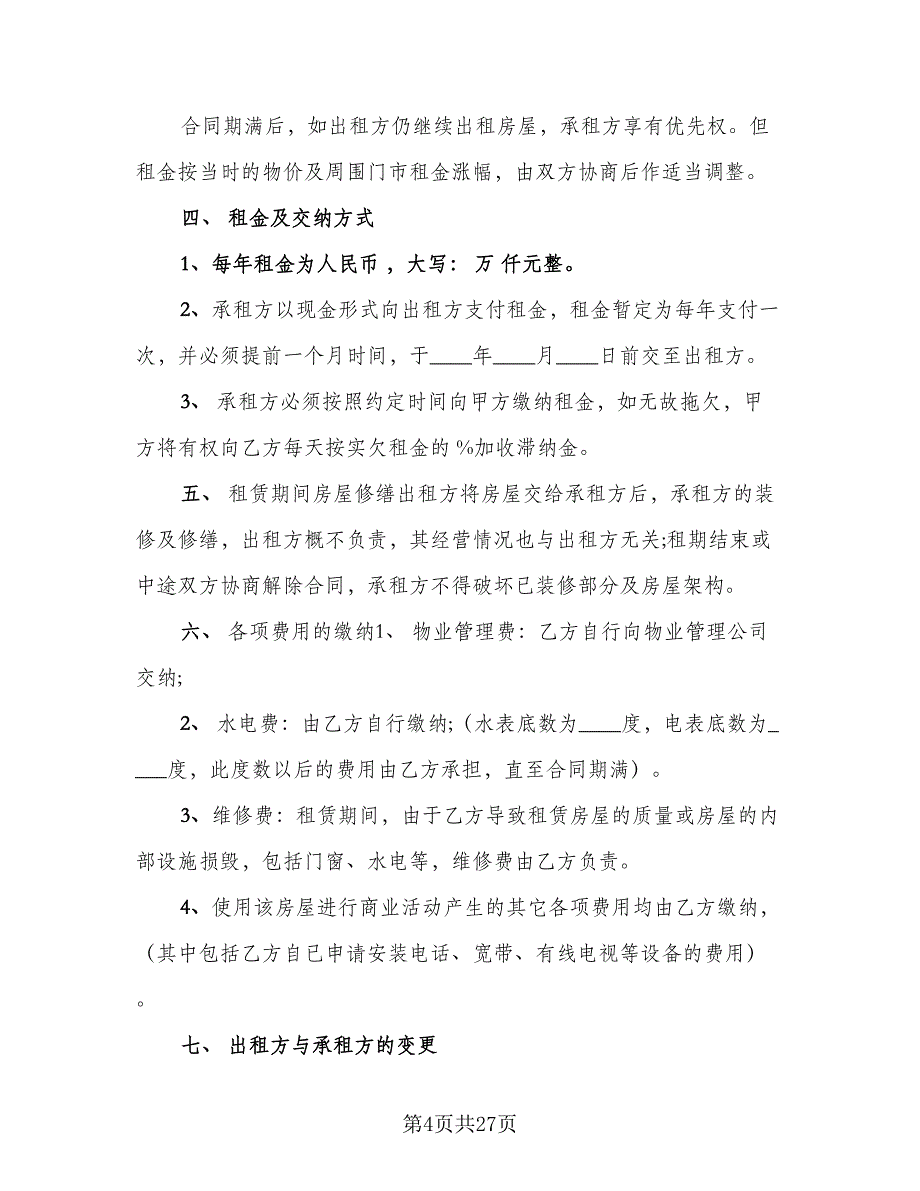 合同期满后，如出租方仍继续出租房屋，承租方享有优先权。但
租金按当时的物价及周围门市租金涨幅，由双方协商后作适当调整。
四、 租金及交纳方式
1、每年租金为人民币 ，大写： 万 仟元整。
2、承租方以现金形式向出租方支付租金，租金暂定为每年支付一
次，并必须提前一个月时间，于____年____月____日前交至出租方。
3、 承租方必须按照约定时间向甲方缴纳租金，如无故拖欠，甲
方将有权向乙方每天按实欠租金的 %加收滞纳金。
五、 租赁期间房屋修缮出租方将房屋交给承租方后，承租方的装
修及修缮，出租方概不负责，其经营情况也与出租方无关;租期结束或
中途双方协商解除合同，承租方不得破坏已装修部分及房屋架构。
六、 各项费用的缴纳1、 物业管理费：乙方自行向物业管理公司
交纳;
2、 水电费：由乙方自行缴纳;（水表底数为____度，电表底数为_
___度，此度数以后的费用由乙方承担，直至合同期满）。
3、维修费：租赁期间，由于乙方导致租赁房屋的质量或房屋的内
部设施损毁，包括门窗、水电等，维修费由乙方负责。
4、使用该房屋进行商业活动产生的其它各项费用均由乙方缴纳，
（其中包括乙方自己申请安装电话、宽带、有线电视等设备的费用）
。
七、 出租方与承租方的变更
第4页共27页